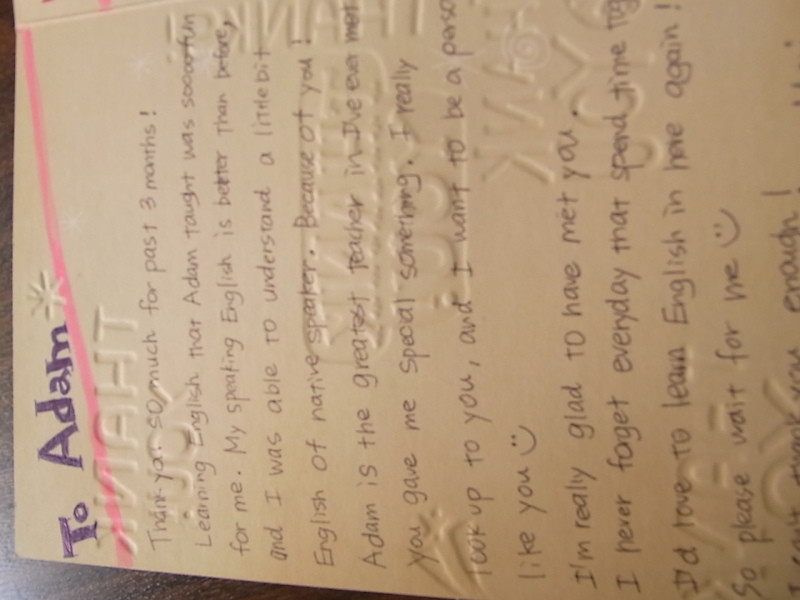 To Adam
Thank you so much for past 3 months!
Learning English that Adam taught was sooooo fun
for me. My speaking English is better than before,
and I was able to understand a little bit
English of native speaker. Because of you!
Adam is the greatest teacher in I've ever met
you gave me special something. I really
look up to you, and I want to be a perso
like you
I'm really glad to have met you.
I never forget everyday that spend time tog
I'd love to learn English in here again!
So please wait for me
I can't thank you enough!